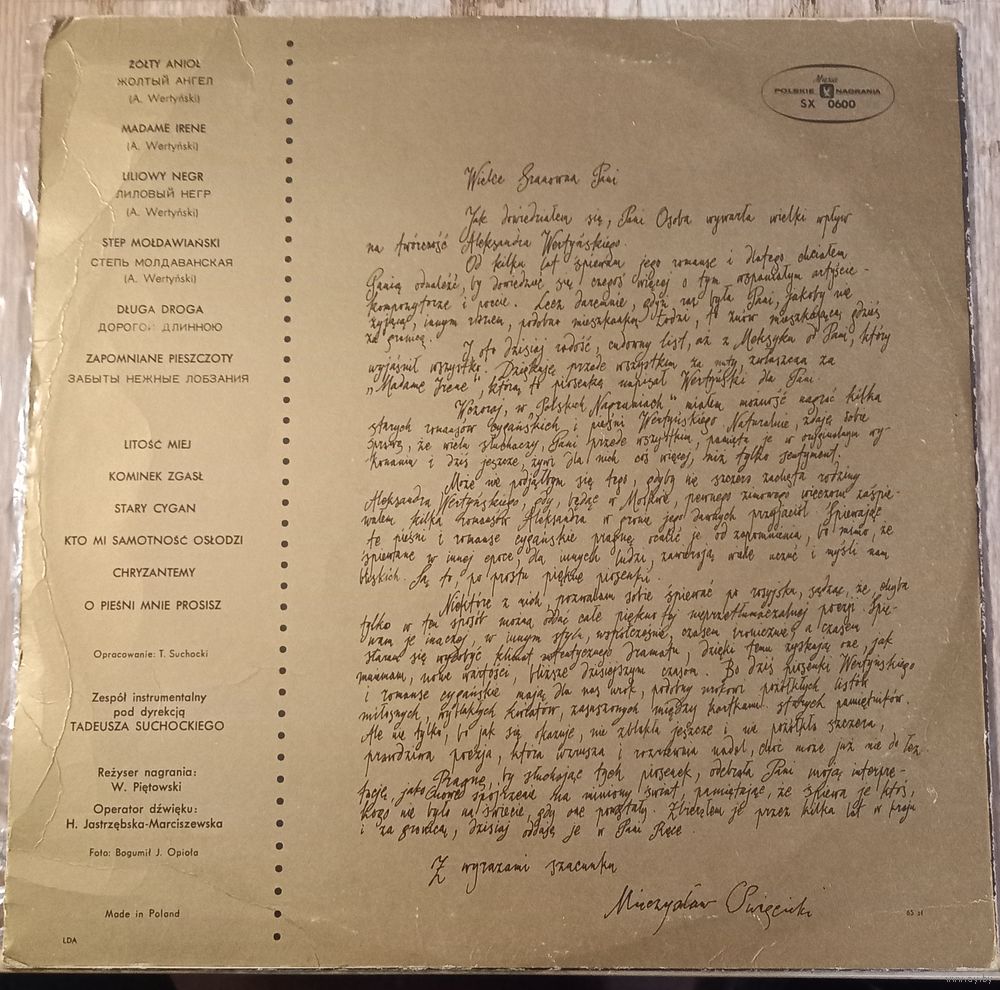 ŻÓŁTY ANIOŁ
ЖОЛТЫЙ АНГЕЛ
(A. Wertyński)
MADAME IRENE
(A. Wertyński)
LILIOWY NEGR
ЛИЛОВЫЙ НЕГР
(A. Wertyński)
STEP MOŁDAWIAŃSKI
СТЕПЬ МОЛДАВАНСКАЯ
(A. Wertyński)
DŁUGA DROGA
ДОРОГОЙ ДЛИННОЮ
ZAPOMNIANE PIESZCZOTY
ЗАБЫТЫ НЕЖНЫЕ ЛОБЗАНИЯ
LITOŚĆ MIEJ
KOMINEK ZGASŁ
STARY CYGAN
KTO MI SAMOTNOŚĆ OSŁODZI
CHRYZANTEMY
O PIEŚNI MNIE PROSISZ
Opracowanie: T. Suchocki
Zespół instrumentalny
pod dyrekcją
TADEUSZA SUCHOCKIEGO
Reżyser nagrania:
W. Piętowski
Operator dźwięku:
H. Jastrzębska-Marciszewska
Foto: Bogumił J. Opioła
Made in Poland
LDA
Muza
POLSKIE NAGRANIA
SX 0600
Wielce Szanowna Pani
Jak dowiedziałem się, Pani Osoba wywarła wielki wpływ
na twórczość Aleksandra Wertyńskiego.
Od kilku lat śpiewam jego romanse i dlatego chciałem
Panią odnaleźć, by dowiedzieć się czegoś więcej o tym wspaniałym artyście-
kompozytorze i poecie. Lecz daremnie, gdyż raz była Pani, jakoby nie
żyjącą, innym razem, podobno mieszkanką Łodzi, to znów mieszkającą gdzieś
za granicą.
I oto dzisiaj radość, cudowny list, aż z Meksyku od Pani, który
wyjaśnił wszystko. Dziękuję przede wszystkim za nuty, zwłaszcza za
"Madame Irene", którą to piosenkę napisał Wertyński dla Pani.
Wczoraj, w "Polskich Nagraniach" miałem możność nagrać kilka
starych romansów cygańskich i pieśni Wertyńskiego. Naturalnie, zdaję sobie
sprawę, że wielu słuchaczy, Pani przede wszystkim, pamięta je w oryginalnym wy-
konaniu i dziś jeszcze, żywi dla nich coś więcej, niż tylko sentyment.
Może nie podjąłbym się tego, gdyby nie szczera zachęta rodziny
Aleksandra Wertyńskiego, gdy, będąc w Moskwie, pewnego zimowego wieczoru zaśpie-
wałem kilka romansów Aleksandra w gronie jego dawnych przyjaciół. Śpiewając
te pieśni i romanse cygańskie pragnę ocalić je od zapomnienia, bo mimo, że
śpiewane w innej epoce, dla innych ludzi, zawierają wiele uczuć i myśli nam
bliskich. Są to, po prostu piękne piosenki.
Niektóre z nich pozwalam sobie śpiewać po rosyjsku, sądząc, że chyba
tylko w ten sposób można oddać całe piękno tej nieprzetłumaczalnej poezji. Śpie-
wam je inaczej, w innym stylu, współcześnie, czasem ironicznie, a czasem
staram się wydobyć klimat autentycznego dramatu, dzięki temu zyskają one, jak
mniemam, nowe wartości, bliższe dzisiejszym czasom. Bo dziś piosenki Wertyńskiego
i romanse cygańskie mają dla nas urok, podobny urokowi pożółkłych listów
miłosnych, wyblakłych kwiatów, zasuszonych między kartkami starych pamiętników.
Ale nie tylko, bo jak się okazuje, nie zblakła jeszcze i nie pożółkła szczera,
prawdziwa poezja, która wzrusza i rozrzewnia nadal, choć może już nie do łez.
Pragnę, by słuchając tych piosenek, odebrała Pani moją interpre-
tację, jako nowe spojrzenie na miniony świat, pamiętając, że śpiewa je ktoś,
kogo nie było na świecie, gdy one powstały. Zbierałem je przez kilka lat w kraju
i za granicą, dzisiaj oddaję je w Pani Ręce.
Z wyrazami szacunku
Mieczysław Święcicki
65 zł